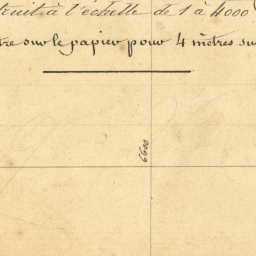 à l'échelle de 1 à 4000
sur le papier pour 4 mètres
6600